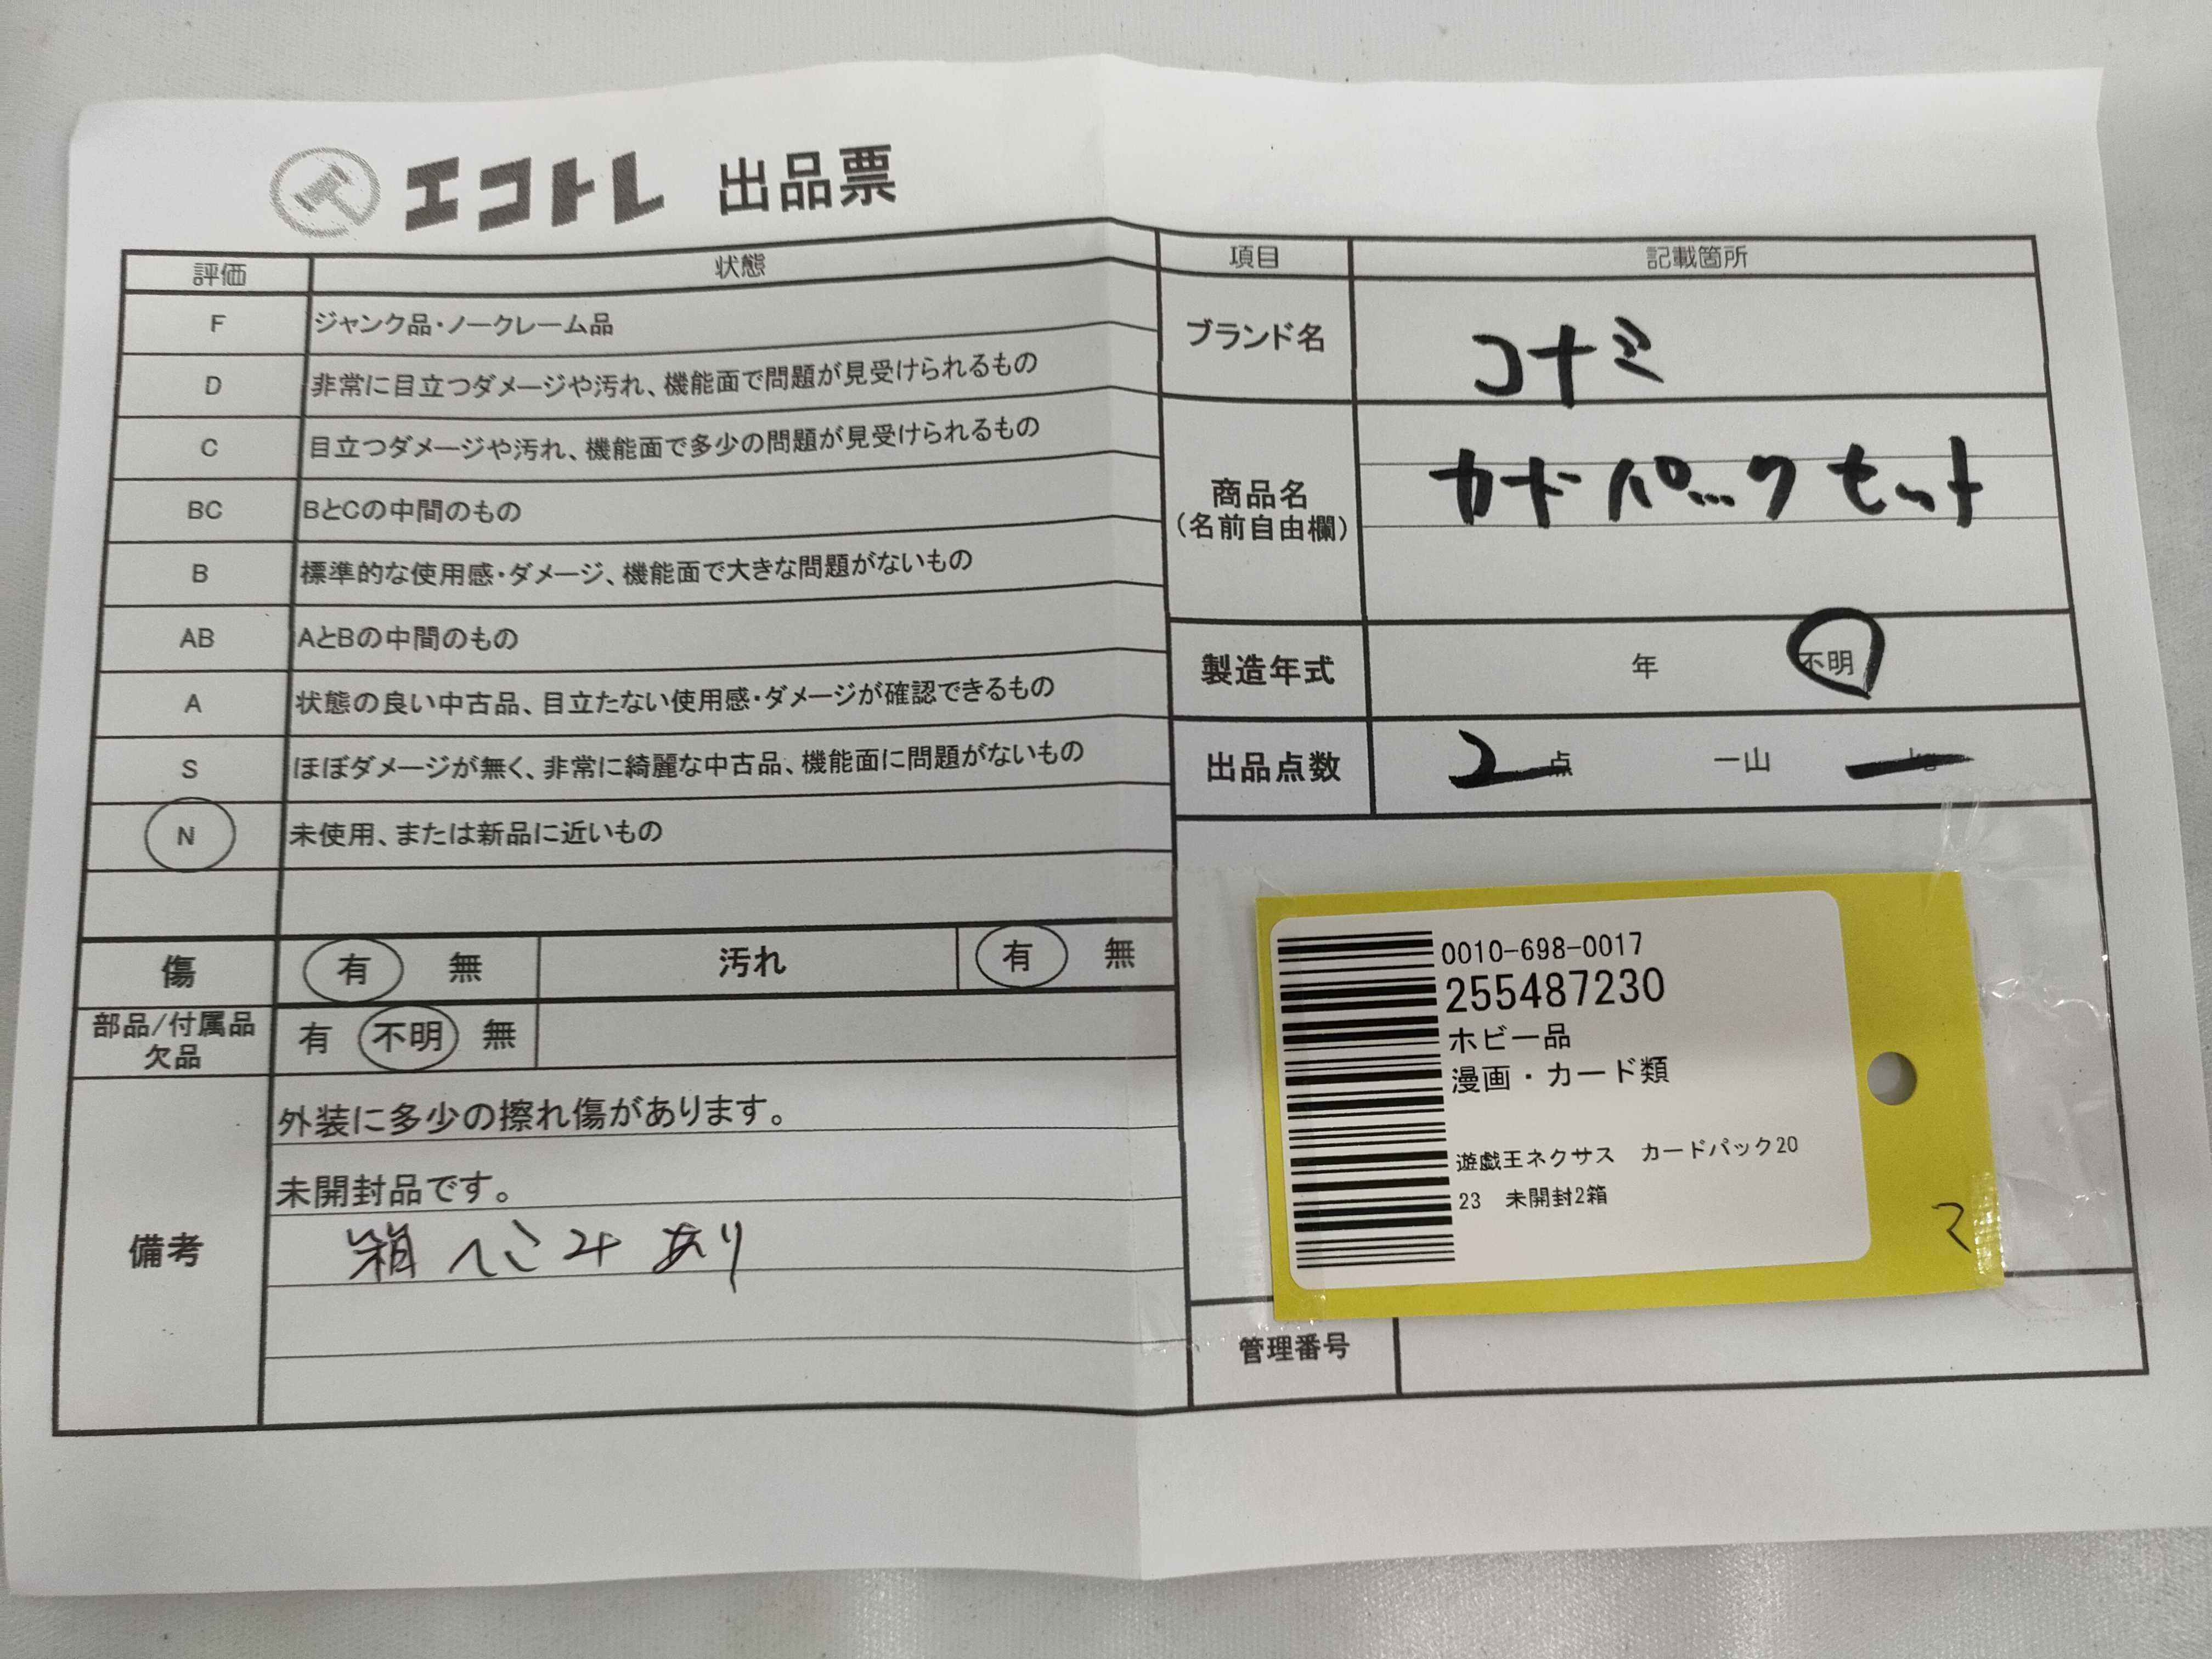 エコトレ 出品票
評価 状態
F ジャンク品・ノークレーム品
D 非常に目立つダメージや汚れ、機能面で問題が見受けられるもの
C 目立つダメージや汚れ、機能面で多少の問題が見受けられるもの
BC BとCの中間のもの
B 標準的な使用感・ダメージ、機能面で大きな問題がないもの
AB AとBの中間のもの
A 状態の良い中古品、目立たない使用感・ダメージが確認できるもの
S ほぼダメージが無く、非常に綺麗な中古品、機能面に問題がないもの
N 未使用、または新品に近いもの
傷 有 無 汚れ 有 無
部品/付属品
欠品 有 不明 無
備考
外装に多少の擦れ傷があります。
未開封品です。
箱 へこみ あり
項目 記載箇所
ブランド名 コナミ
商品名
(名前自由欄)
カード パック セット
製造年式 年 不明
出品点数 2 点 一山
0010-698-0017
255487230
ホビー品
漫画・カード類
遊戯王ネクサス カードパック20
23 未開封2箱
管理番号